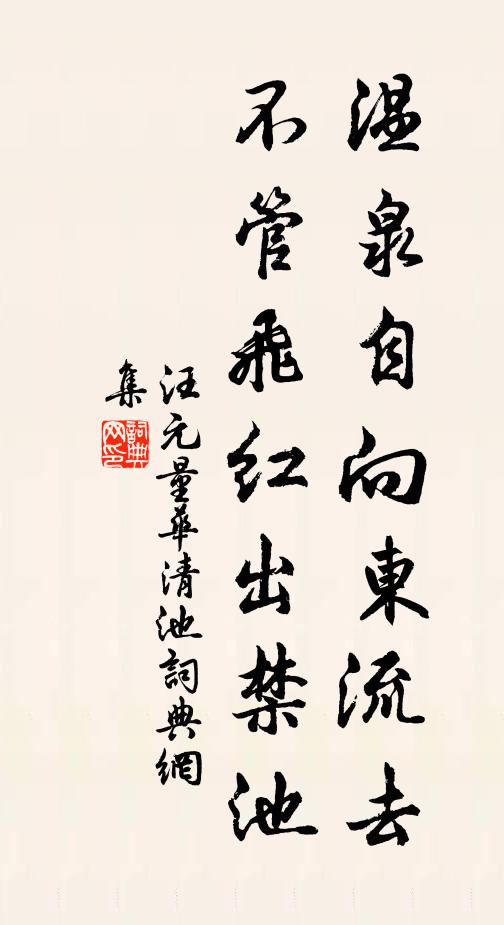 温泉自向東流去
不管飛紅出禁池
汪元量華清池詞典網
集
詞典網印